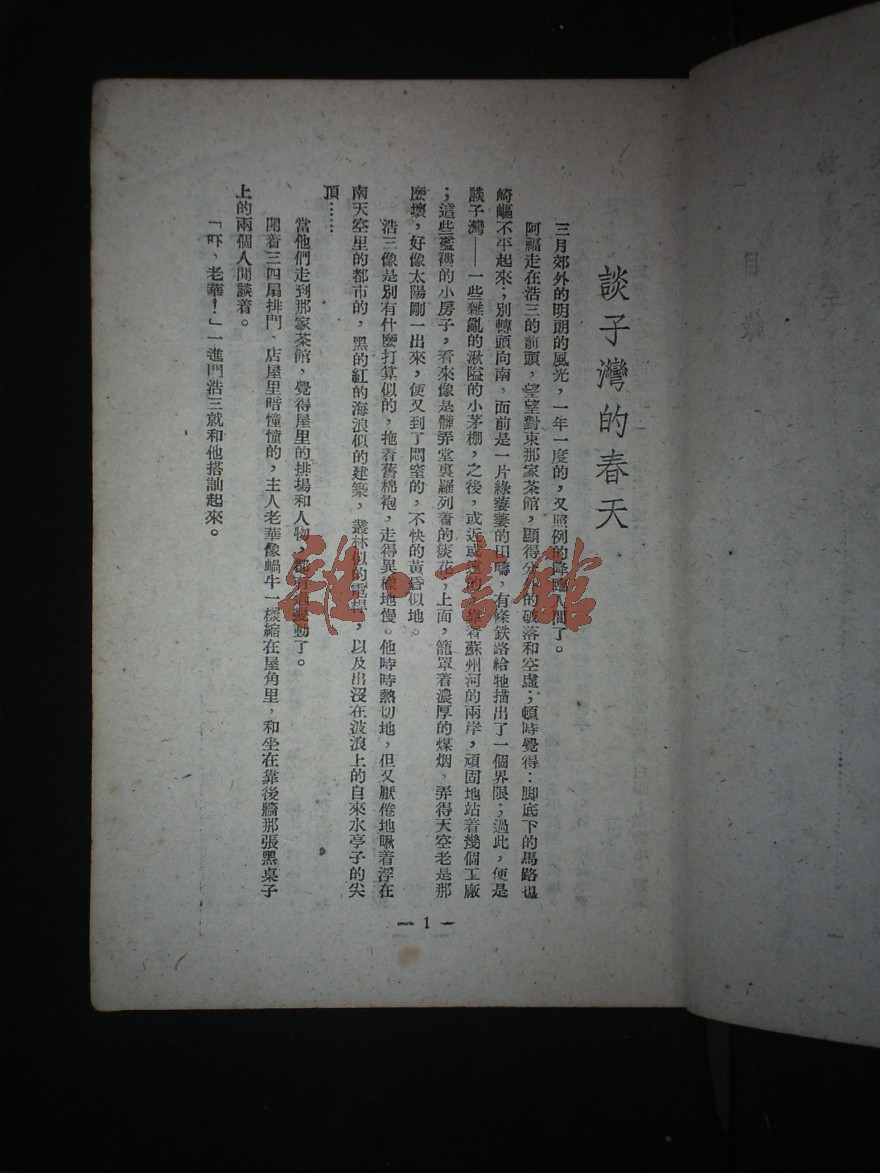 談子灣的春天
三月郊外的明朗的風光，一年一度的，又照例的降臨人間了。
阿福走在浩三的前頭，望望對東那家茶館，顯得分外的破落和空虛；頓時覺得：脚底下的馬路也
崎嶇不平起來；別轉頭向南，面前是一片綠萋萋的田疇，有條鉄路給牠描出了一個界限；過此，便是
談子灣——一些雜亂的湫隘的小茅棚，之後，或近或遠的，靠着蘇州河的兩岸，頑固地站着幾個工廠
；這些襤褸的小房子，看來像是髒弄堂裏羅列着的痰花，上面，籠罩着濃厚的煤烟，弄得天空老是那
麼壞，好像太陽剛一出來，便又到了悶窒的，不快的黃昏似地。
浩三像是別有什麼打算似的，拖着舊棉袍，走得異樣地慢。他時時熱切地，但又厭倦地瞅着浮在
南天空里的都市的，黑的紅的海浪似的建築，叢林似的電桿，以及出沒在波浪上的自來水亭子的尖
頂……
當他們走到那家茶館，覺得屋里的排場和人物，都有過變動了。
閉着三四扇排門、店屋里暗憧憧的，主人老華像蝸牛一樣縮在屋角里，和坐在靠後牆那張黑桌子
上的兩個人閒談着。
「吓、老華！」一進門浩三就和他搭訕起來。
— 1 —
雜·書館
目